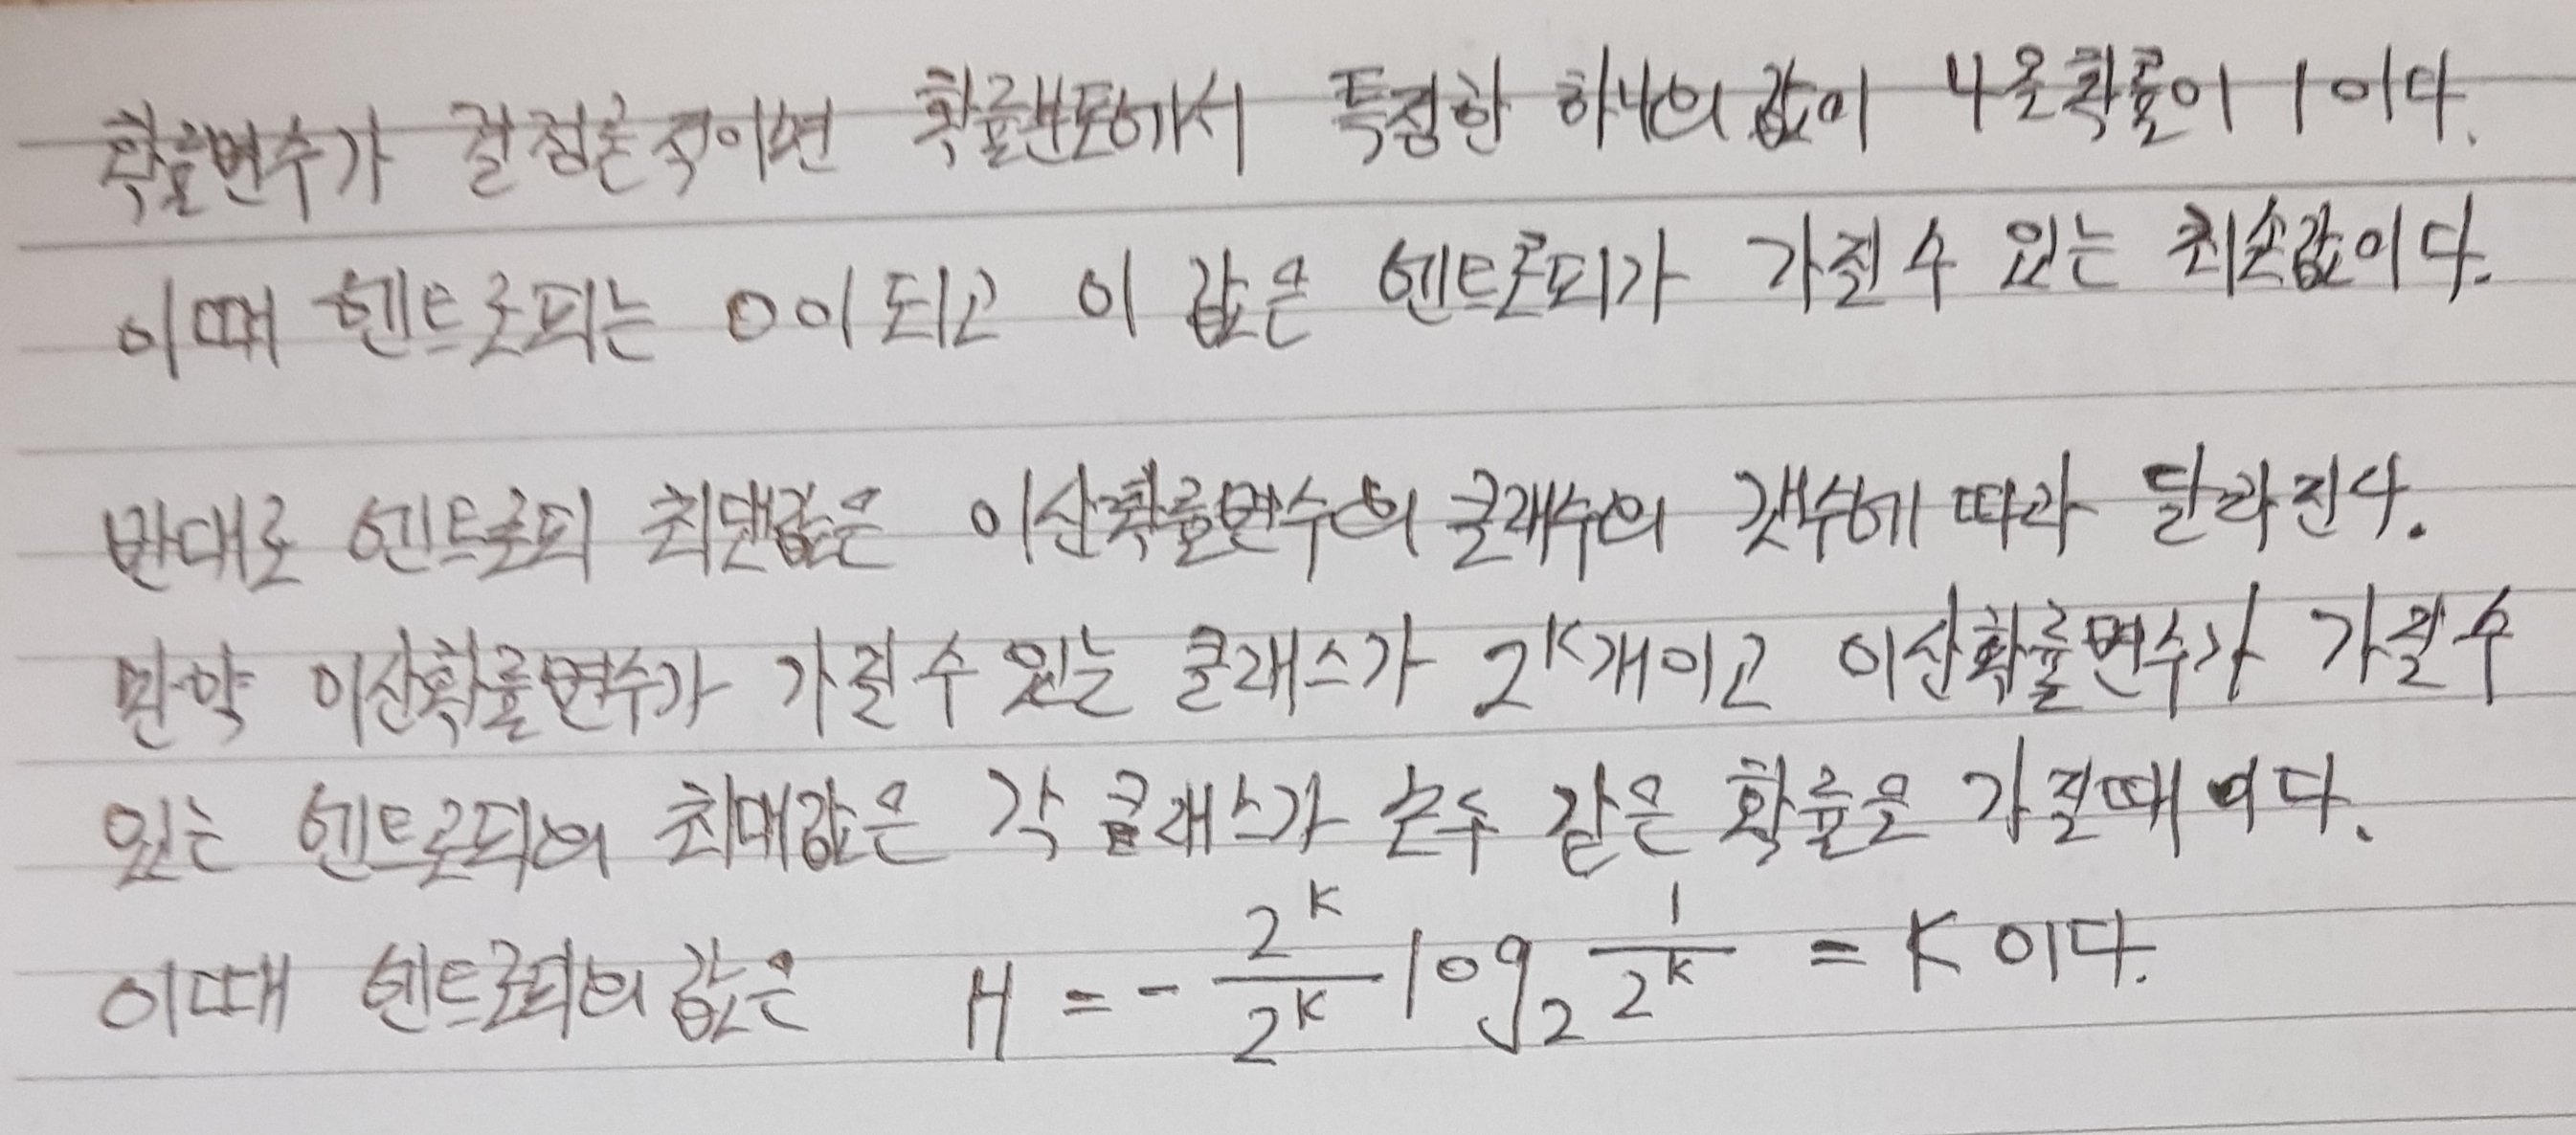 확률변수가 결정론적이면 확률분포에서 특정한 하나의 값이 나올확률이 1이다.
이때 엔트로피는 0이되고 이 값은 엔트로피가 가질수 있는 최솟값이다.
반대로 엔트로피 최댓값은 이산확률변수의 클래수의 갯수에 따라 달라진다.
만약 이산확률변수가 가질수 있는 클래스가 2^K개이고 이산확률변수가 가질수
있는 엔트로피의 최대값은 각 클래스가 모두 같은 확률을 가질때이다.
이때 엔트로피의 값은 H = - 2^K/2^K log₂ 1/2^K = K 이다.